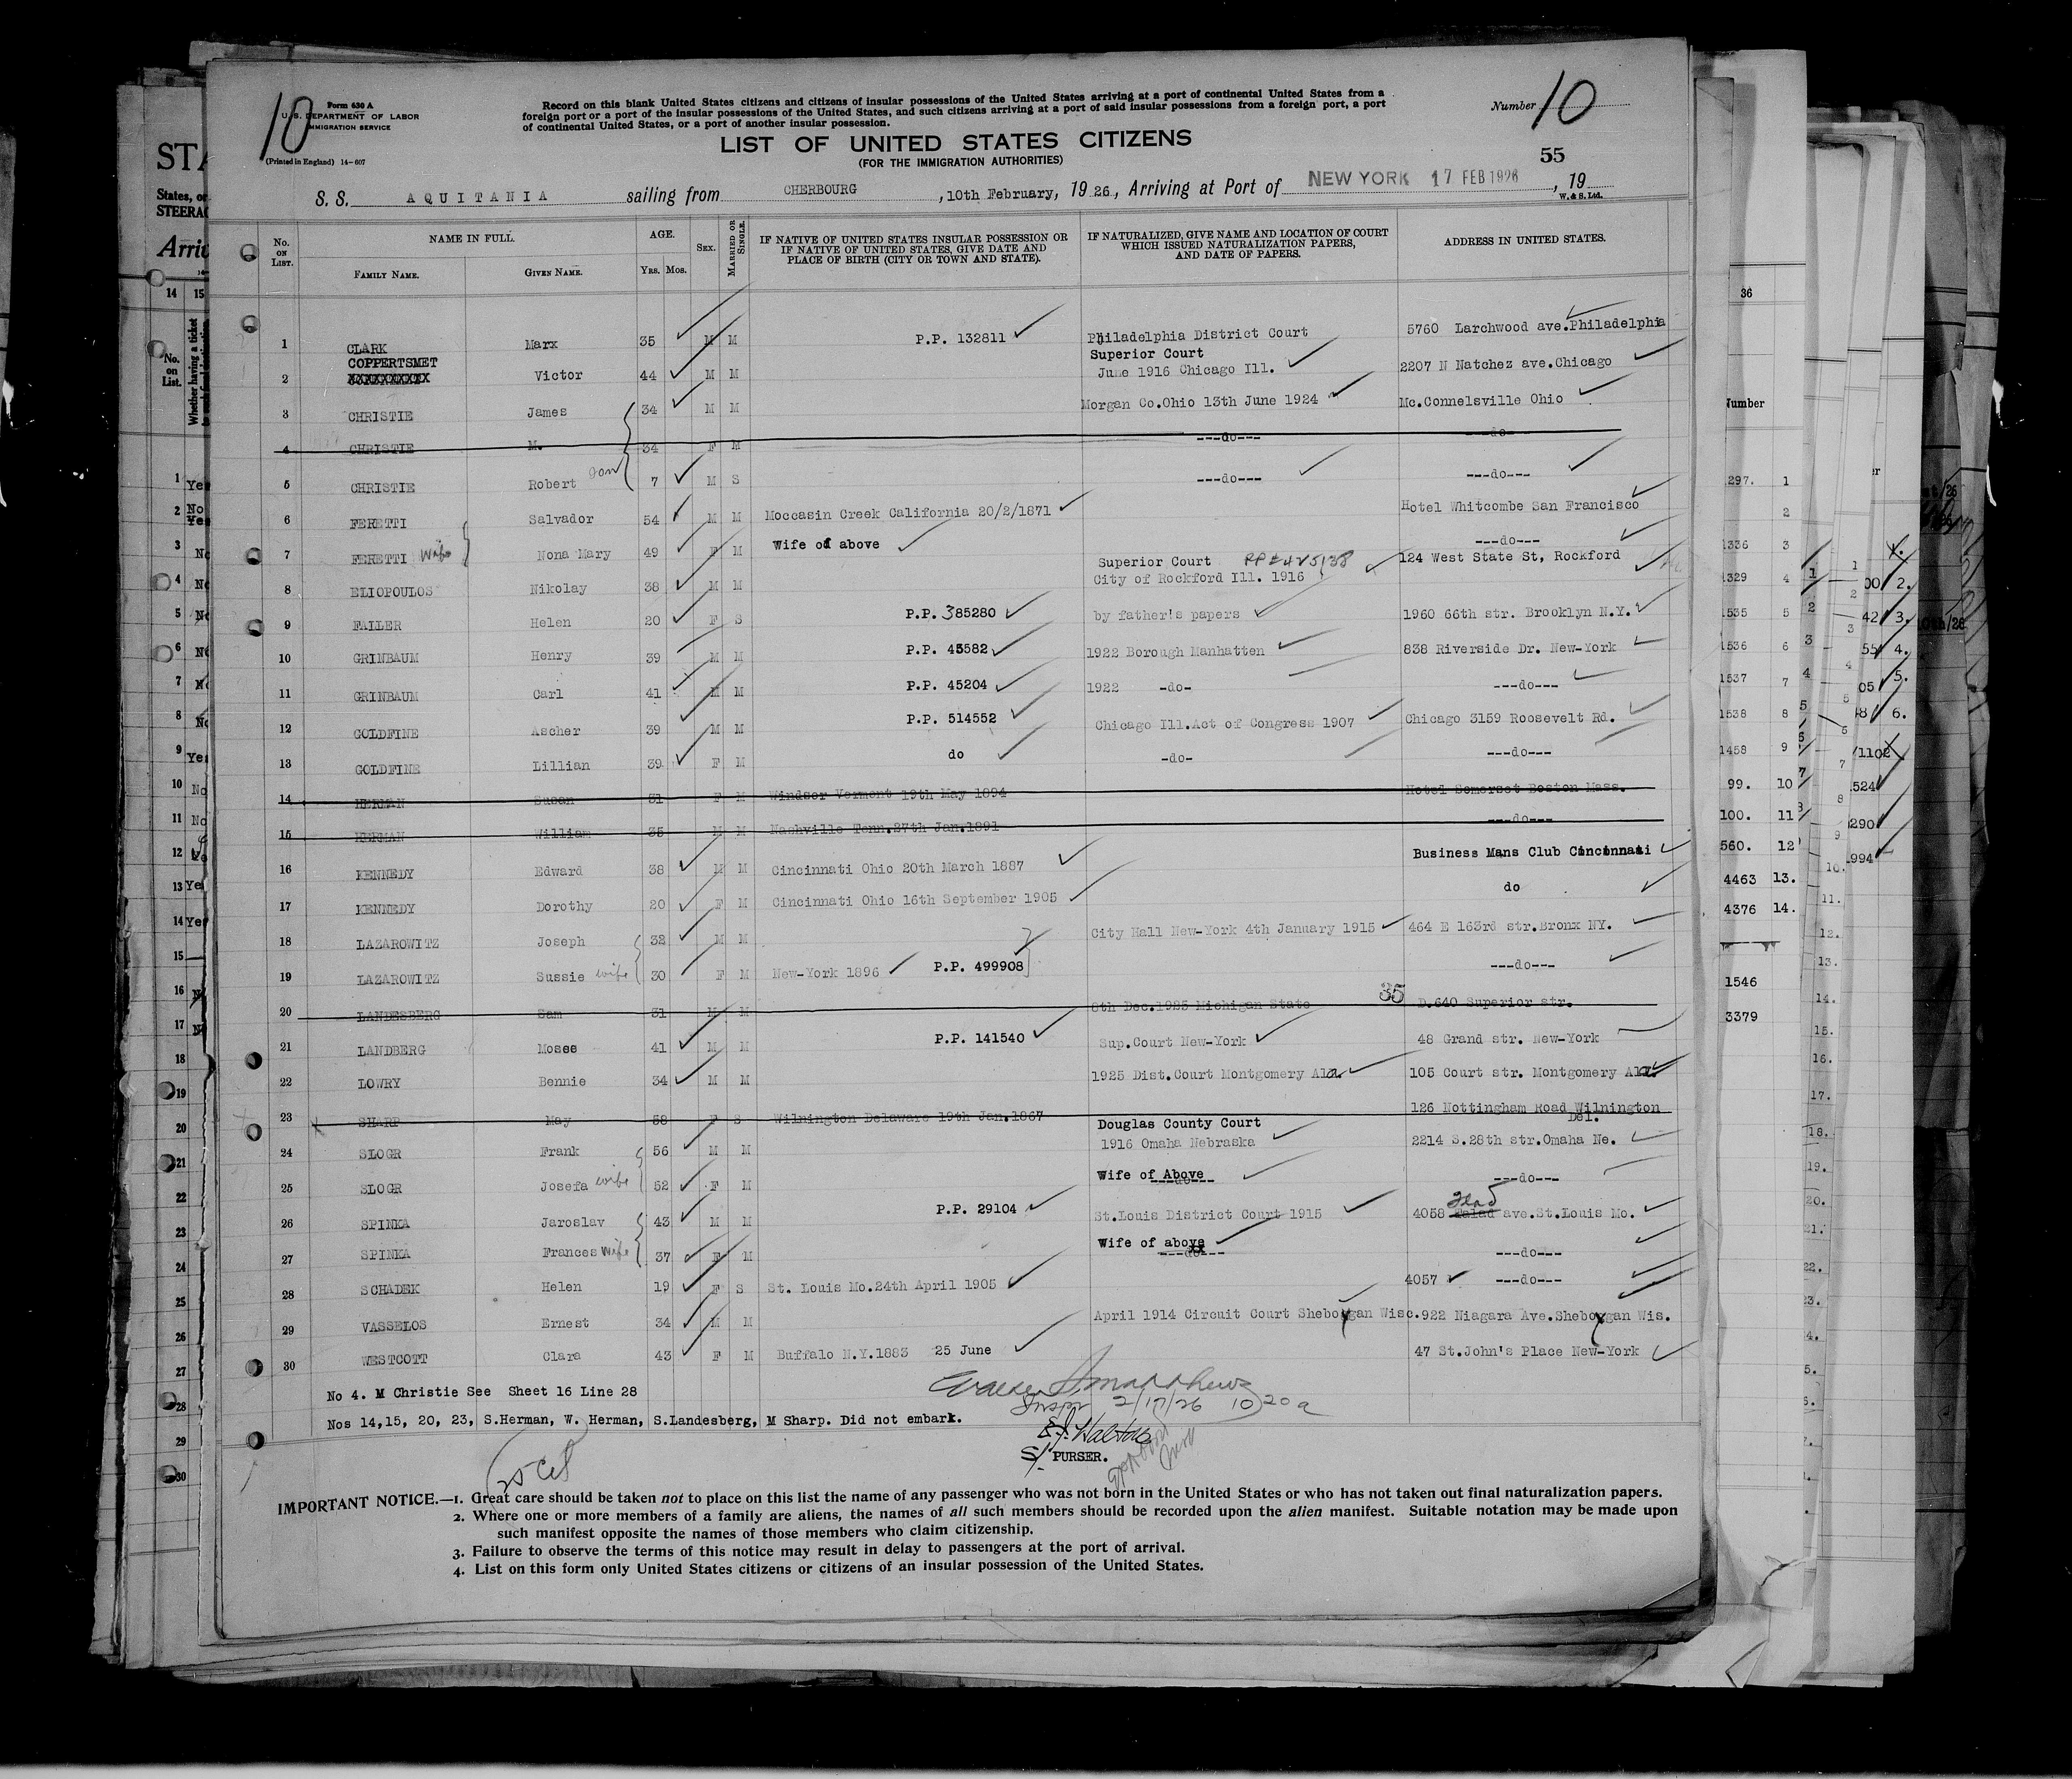 10
Form 630 A
U.S. DEPARTMENT OF LABOR
IMMIGRATION SERVICE
(Printed in England) 14-607
Record on this blank United States citizens and citizens of insular possessions of the United States arriving at a port of continental United States from a
foreign port or a port of the insular possessions of the United States, and such citizens arriving at a port of said insular possessions from a foreign port, a port
of continental United States, or a port of another insular possession.
Number 10
LIST OF UNITED STATES CITIZENS
(FOR THE IMMIGRATION AUTHORITIES)
55
S. S. AQUITANIA sailing from CHERBOURG, 10th February, 1926, Arriving at Port of NEW YORK 17 FEB 1926, 19
W. & S. Ltd.
No. ON LIST. NAME IN FULL. FAMILY NAME. GIVEN NAME. AGE. YRS. MOS. SEX. MARRIED OR SINGLE. IF NATIVE OF UNITED STATES INSULAR POSSESSION OR IF NATIVE OF UNITED STATES, GIVE DATE AND PLACE OF BIRTH (CITY OR TOWN AND STATE). IF NATURALIZED, GIVE NAME AND LOCATION OF COURT WHICH ISSUED NATURALIZATION PAPERS, AND DATE OF PAPERS. ADDRESS IN UNITED STATES.
1 CLARK Marx 35 M M P.P. 132811 Philadelphia District Court 5760 Larchwood ave.Philadelphia
2 COPPERTSMET Victor 44 M M Superior Court June 1916 Chicago Ill. 2207 N Natchez ave.Chicago
3 CHRISTIE James 34 M M Morgan Co.Ohio 13th June 1924 Mc.Connelsville Ohio
4 CHRISTIE M. 34 F M ---do--- ---do---
5 CHRISTIE Robert son 7 M S ---do--- ---do---
6 FERETTI Salvador 54 M M Moccasin Creek California 20/2/1871 Hotel Whitcombe San Francisco
7 FERETTI Wife Nona Mary 49 F M Wife of above ---do---
8 ELIOPOULOS Nikolay 38 M M Superior Court City of Rockford Ill. 1916 PP#425138 124 West State St, Rockford
9 FAILER Helen 20 F S P.P. 385280 by father's papers 1960 66th str. Brooklyn N.Y.
10 GRINBAUM Henry 39 M M P.P. 45582 1922 Borough Manhatten 838 Riverside Dr. New-York
11 GRINBAUM Carl 41 M M P.P. 45204 1922 -do- ---do---
12 GOLDFINE Ascher 39 M M P.P. 514552 Chicago Ill.Act of Congress 1907 Chicago 3159 Roosevelt Rd.
13 GOLDFINE Lillian 39 F M do -do- ---do---
14 HERMAN Susan 31 F M Windsor Vermont 19th May 1894 Hotel Somerset Boston Mass.
15 HERMAN William 35 M M Nashville Tenn.27th Jan.1891 ---do---
16 KENNEDY Edward 38 M M Cincinnati Ohio 20th March 1887 Business Mans Club Cincinnati
17 KENNEDY Dorothy 20 F M Cincinnati Ohio 16th September 1905 do
18 LAZAROWITZ Joseph 32 M M City Hall New-York 4th January 1915 464 E 163rd str.Bronx NY.
19 LAZAROWITZ Sussie wife 30 F M New-York 1896 P.P. 499908 ---do---
20 LANDESBERG Sam 31 M M 8th Dec.1925 Michigan State 35 D.640 Superior str.
21 LANDBERG Moses 41 M M P.P. 141540 Sup.Court New-York 48 Grand str. New-York
22 LOWRY Bennie 34 M M 1925 Dist.Court Montgomery Ala. 105 Court str. Montgomery Ala.
23 SHARP May 58 F S Wilmington Delaware 19th Jan.1867 126 Nottingham Road Wilnington Del.
24 SLOGR Frank 56 M M Douglas County Court 1916 Omaha Nebraska 2214 S.28th str.Omaha Ne.
25 SLOGR Josefa wife 52 F M Wife of Above ---do---
26 SPINKA Jaroslav 43 M M P.P. 29104 St.Louis District Court 1915 4058 ave.St.Louis Mo.
27 SPINKA Frances Wife 37 F M Wife of above ---do---
28 SCHADEK Helen 19 F S St. Louis Mo.24th April 1905 4057 ---do---
29 VASSELOS Ernest 34 M M April 1914 Circuit Court Sheboygan Wisc. 922 Niagara Ave.Sheboygan Wis.
30 WESTCOTT Clara 43 F M Buffalo N.Y.1883 25 June 47 St.John's Place New-York
No 4. M Christie See Sheet 16 Line 28
Nos 14,15, 20, 23, S.Herman, W. Herman, S.Landesberg, M Sharp. Did not embark.
Inspr 2/17/26 10 20 a
PURSER.
IMPORTANT NOTICE.—1. Great care should be taken not to place on this list the name of any passenger who was not born in the United States or who has not taken out final naturalization papers.
2. Where one or more members of a family are aliens, the names of all such members should be recorded upon the alien manifest. Suitable notation may be made upon
such manifest opposite the names of those members who claim citizenship.
3. Failure to observe the terms of this notice may result in delay to passengers at the port of arrival.
4. List on this form only United States citizens or citizens of an insular possession of the United States.